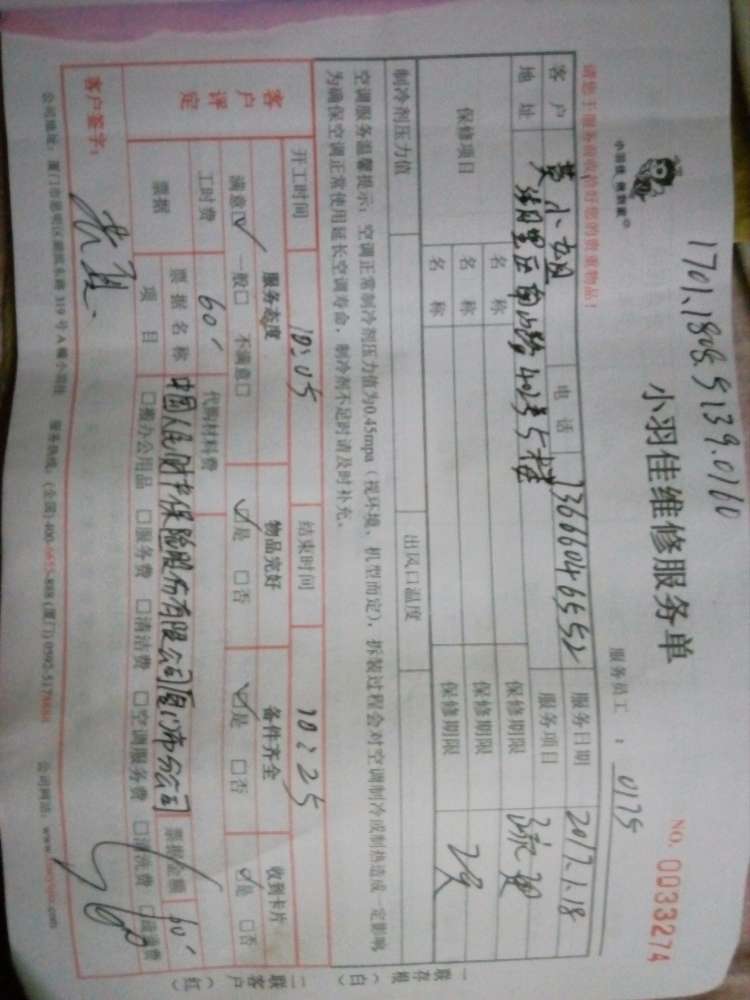 1701.1808.5139.0160
小羽佳维修服务单
NO. 0033274
服务员工：0175
请您于服务前收拾好您的贵重物品！
客户 黄小姐 电话 13666046552 服务日期 2017.1.18
地址 湖里区南山路402号5楼 服务项目
保修项目
名称 保修期限
名称 保修期限
名称 保修期限
制冷剂压力值 出风口温度
空调服务温馨提示：空调正常制冷剂压力值为0.45mpa（视环境、机型而定），拆装过程会对空调制冷或制热造成一定影响
为确保空调正常使用延长空调寿命，制冷剂不足时请及时补充。
开工时间 10:05 结束时间 10:25
客户评定
服务态度 物品完好 备件齐全 收到卡片
满意☑ 一般□ 不满意□ ☑是 □否 ☑是 □否 ☑是 □否
工时费 60 代购材料费
票据 票据名称 中国人民财产保险股份有限公司厦门市分公司 票据金额 60
项目 □搬办公用品 □服务费 □清洁费 □空调服务费 □清洗费
客户签字：
服务热线：(全国)
公司网站：
一联存根（白）
二联客户（红）